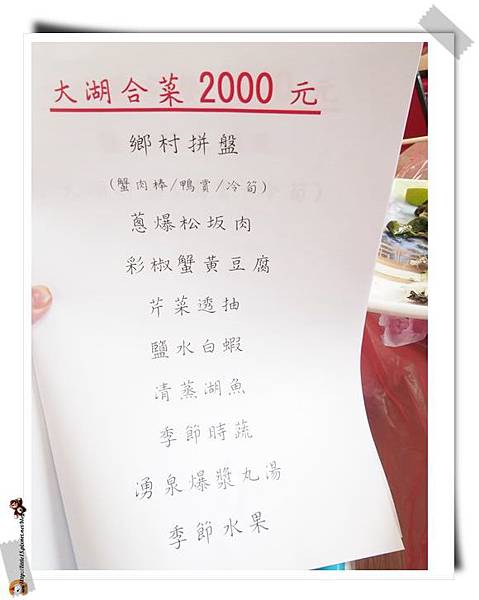 大湖合菜 2000 元
鄉村拼盤
(蟹肉棒/鴨賞/冷筍)
蔥爆松坂肉
彩椒蟹黃豆腐
芹菜透抽
鹽水白蝦
清蒸湖魚
季節時蔬
湧泉爆漿丸湯
季節水果